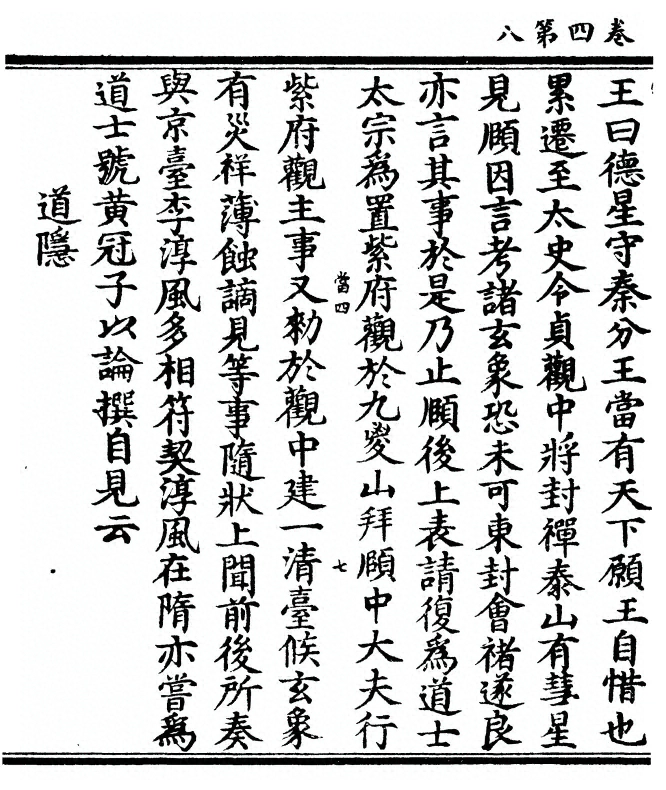 卷四第八
王曰德星守秦分王當有天下願王自惜也
累遷至太史令貞觀中將封禪泰山有彗星
見頥因言考諸玄象恐未可東封會褚遂良
亦言其事於是乃止頥後上表請復爲道士
太宗爲置紫府觀於九嵏山拜頥中大夫行
當四
七
紫府觀主事又勑於觀中建一清臺候玄象
有災祥薄蝕謫見等事隨狀上聞前後所奏
與京臺李淳風多相符契淳風在隋亦嘗爲
道士號黄冠子以論撰自見云
道隱